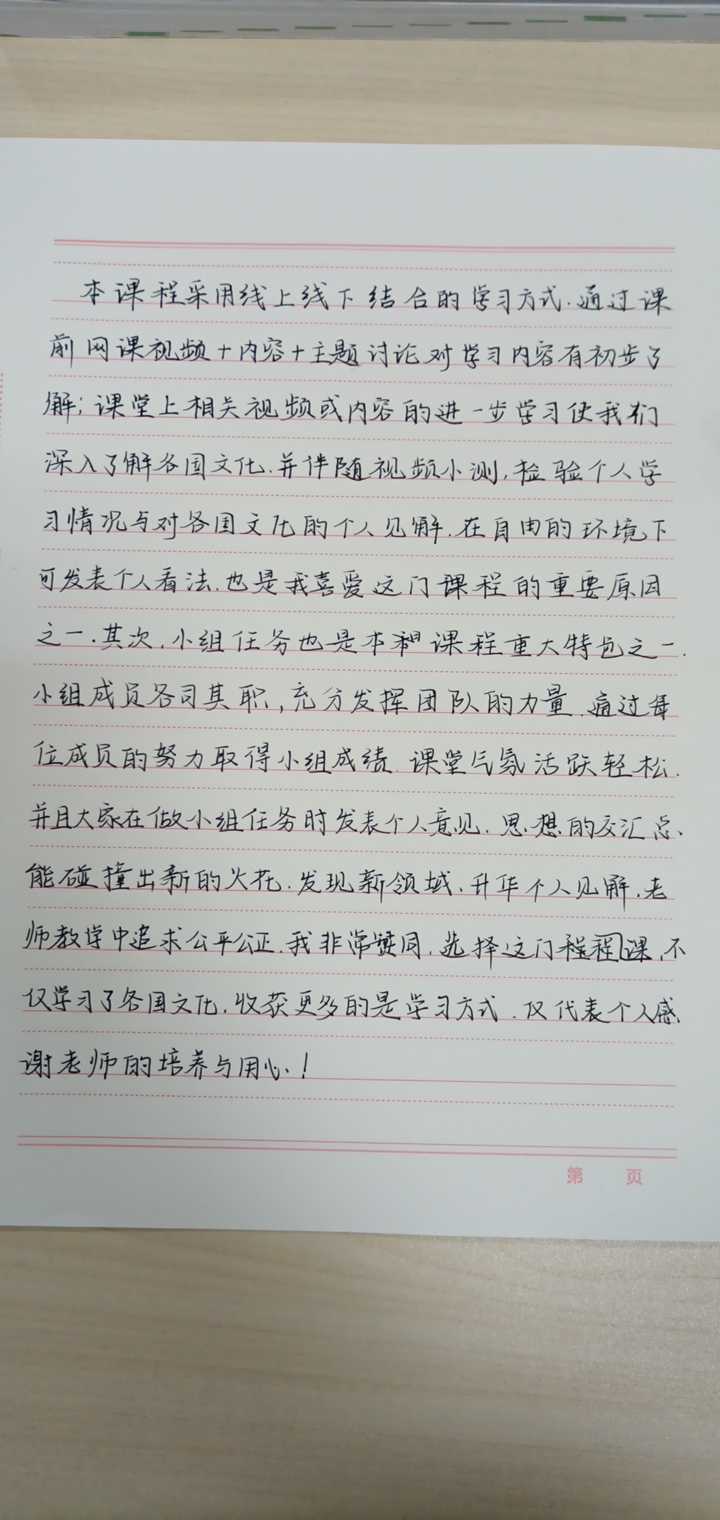 本课程采用线上线下结合的学习方式.通过课
前网课视频+内容+主题讨论对学习内容有初步了
解;课堂上相关视频或内容的进一步学习使我们
深入了解各国文化.并伴随视频小测,检验个人学
习情况与对各国文化的个人见解.在自由的环境下
可发表个人看法.也是我喜爱这门课程的重要原因
之一.其次,小组任务也是本课程重大特色之一.
小组成员各司其职,充分发挥团队的力量.通过每
位成员的努力取得小组成绩.课堂气氛活跃轻松.
并且大家在做小组任务时发表个人意见.思想的交汇总、
能碰撞出新的火花.发现新领域.升华个人见解.老
师教学中追求公平公正.我非常赞同.选择这门程程课,不
仅学习了各国文化.收获更多的是学习方式.仅代表个人感、
谢老师的培养与用心!
第 页